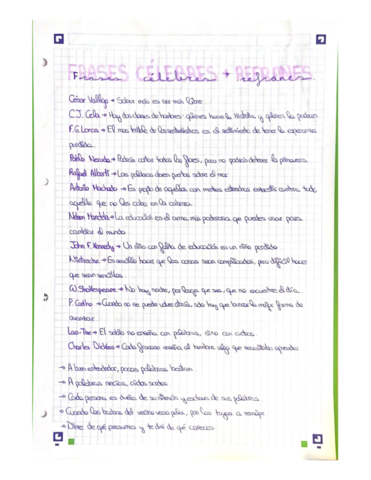 FRASES CÉLEBRES + REFRANES
Frases célebres + refranes
César Vallejo → Saber más es ser más libre.
C.J. Cela → Hay dos clases de hombres: quienes hacen la historia y quienes la padecen
F.G. Lorca → El más terrible de los sentimientos es el sentimiento de tener la esperanza
perdida.
Pablo Neruda → Podrán cortar todas las flores, pero no podrán detener la primavera.
Rafael Alberti → Las palabras abren puertas sobre el mar
Antonio Machado → Es propio de aquellos con mentes estrechas embestir contra todo
aquello que no les cabe en la cabeza.
Nelson Mandela → La educación es el arma más poderosa que puedes usar para
cambiar el mundo
John F. Kennedy → Un niño con falta de educación es un niño perdido
Nietzsche → Es sencillo hacer que las cosas sean complicadas, pero difícil hacer
que sean sencillas
W. Shakespeare → No hay noche, por larga que sea, que no encuentre el día.
P. Coelho → Cuando no se puede volver atrás, sólo hay que buscar la mejor forma de
avanzar
Lao-Tse → El sabio no enseña con palabras, sino con actos.
Charles Dickens → Cada fracaso enseña al hombre algo que necesitaba aprender
→ A buen entendedor, pocas palabras bastan.
→ A palabras necias, oídos sordos
→ Cada persona es dueña de su silencio y esclava de sus palabras.
→ Cuando las barbas del vecino veas pelar, pon las tuyas a remojar
→ Dime de qué presumes y te diré de qué careces